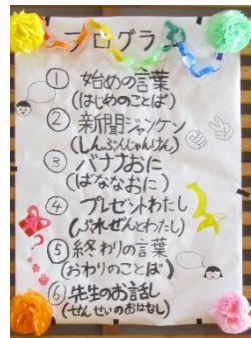 プログラム
① 始めの言葉
(はじめのことば)
② 新聞ジャンケン
(しんぶんじゃんけん)
③ バナナおに
(ばななおに)
④ プレゼントわたし
(ぷれぜんとわたし)
⑤ 終わりの言葉
(おわりのことば)
⑥ 先生のお話し
(せんせいのおはなし)
?